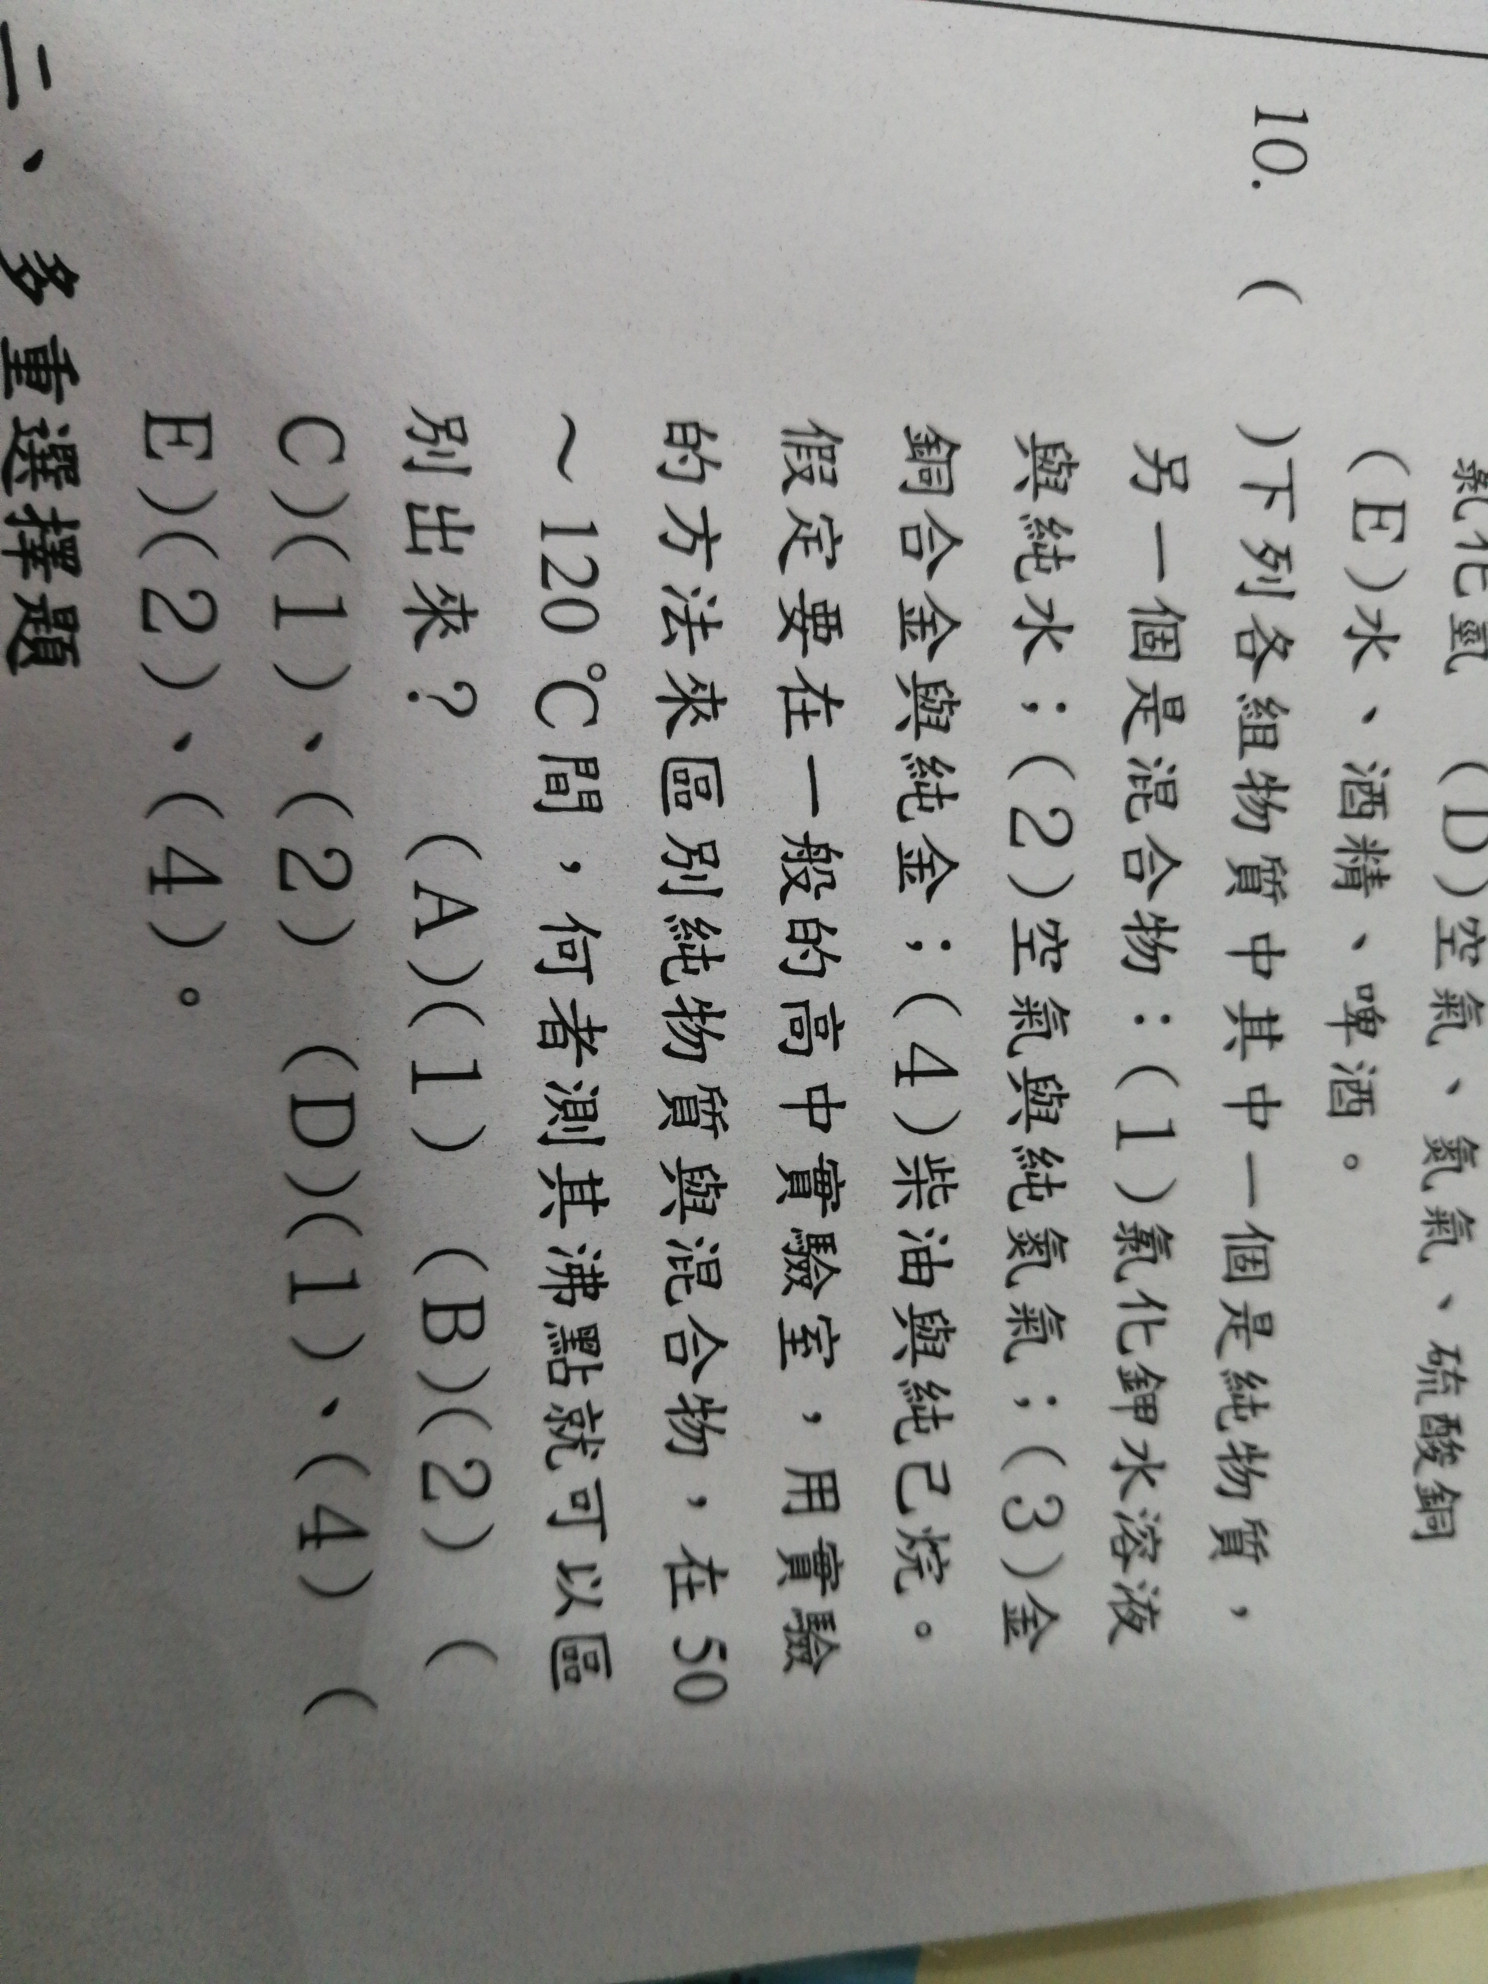 氯化氫 (D)空氣、氮氣、硫酸銅
(E)水、酒精、啤酒。
10. ( )下列各組物質中其中一個是純物質，
另一個是混合物：(1)氯化鉀水溶液
與純水；(2)空氣與純氮氣；(3)金
銅合金與純金；(4)柴油與純己烷。
假定要在一般的高中實驗室，用實驗
的方法來區別純物質與混合物，在 50
～120℃間，何者測其沸點就可以區
別出來？ (A)(1) (B)(2) (
C)(1)、(2) (D)(1)、(4) (
E)(2)、(4)。
二、多重選擇題